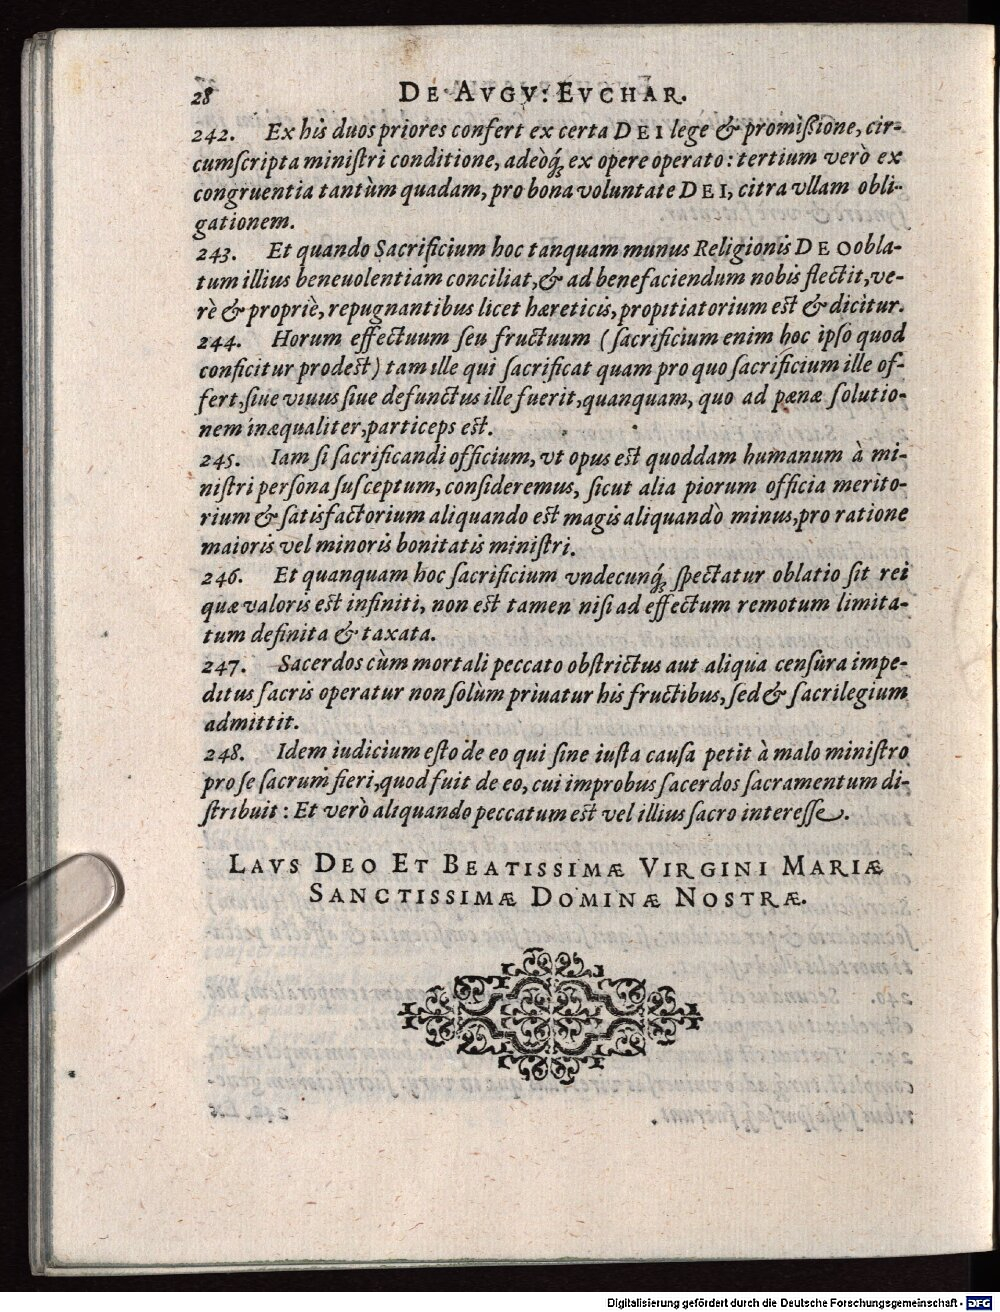 28 DE AVGV: EVCHAR.
242. Ex his duos priores confert ex certa DEI lege & promißione, cir-
cumſcripta miniſtri conditione, adeòq́ꝫ ex opere operato: tertium verò ex
congruentia tantùm quadam, pro bona voluntate DEI, citra vllam obli-
gationem.
243. Et quando Sacrificium hoc tanquam munus Religionis DEO obla-
tum illius beneuolentiam conciliat, & ad benefaciendum nobis flectit, ve-
rè & propriè, repugnantibus licet hæreticis, propitiatorium est & dicitur.
244. Horum effectuum ſeu fructuum (ſacrificium enim hoc ipſo quod
conficitur prodest) tam ille qui ſacrificat quam pro quo ſacrificium ille of-
fert, ſiue viuus ſiue defunctus ille fuerit, quanquam, quo ad pænæ ſolutio-
nem inæqualiter, particeps est.
245. Iam ſi ſacrificandi officium, vt opus est quoddam humanum à mi-
niſtri perſona ſuſceptum, conſideremus, ſicut alia piorum officia merito-
rium & ſatisfactorium aliquando est magis aliquandò minus, pro ratione
maioris vel minoris bonitatis miniſtri.
246. Et quanquam hoc ſacrificium vndecunq́ꝫ ſpectatur oblatio ſit rei
quæ valoris est infiniti, non est tamen niſi ad effectum remotum limita-
tum definita & taxata.
247. Sacerdos cùm mortali peccato obſtrictus aut aliqua cenſura impe-
ditus ſacris operatur non ſolùm priuatur his fructibus, ſed & ſacrilegium
admittit.
248. Idem iudicium eſto de eo qui ſine iuſta cauſa petit à malo miniſtro
pro ſe ſacrum fieri, quod fuit de eo, cui improbus ſacerdos ſacramentum di-
ſtribuit: Et verò aliquando peccatum est vel illius ſacro intereſſe.
LAVS DEO ET BEATISSIMÆ VIRGINI MARIÆ
SANCTISSIMÆ DOMINÆ NOSTRÆ.
Digitalisierung gefördert durch die Deutsche Forschungsgemeinschaft - DFG